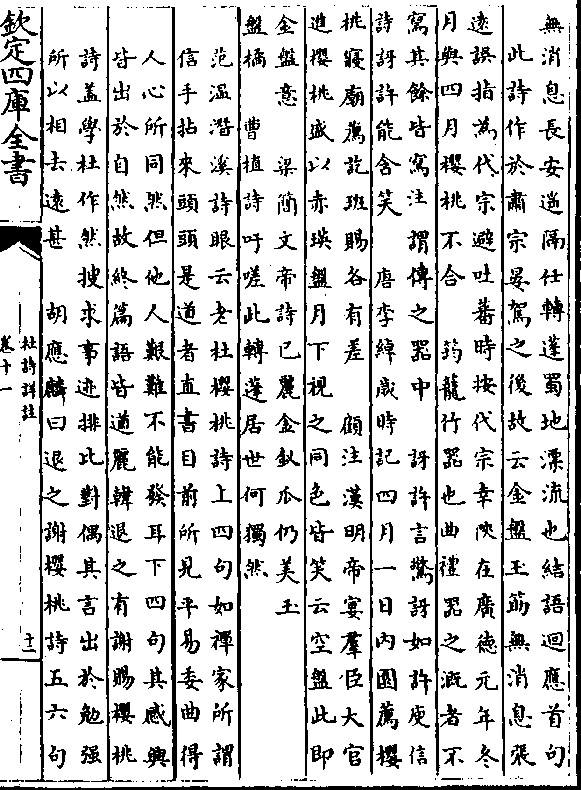 無消息長安遥隔仕轉蓬蜀地漂流也結語迴應首句
此詩作於肅宗晏駕之後故云金盤玉筯無消息張
遠誤指為代宗避吐蕃時按代宗幸陜在廣德元年冬
月與四月櫻桃不合　筠籠竹器也曲禮器之溉者不
寫其餘皆寫注　謂傳之器中　訝許言驚訝如許庾信
詩訝許能含笑　唐李綽歲時記四月一日内園薦櫻
桃寢廟薦訖班賜各有差　顧注漢明帝宴羣臣大官
進櫻桃盛以赤瑛盤月下視之同色皆笑云空盤此即
金盤意　梁簡文帝詩已麗金釵瓜仍美玉
盤橘　曹植詩吁嗟此轉蓬居世何獨然
范温潛溪詩眼云老杜櫻桃詩上四句如禪家所謂
信手拈來頭頭是道者直書目前所見平易委曲得
人心所同然但他人艱難不能發耳下四句其感興
皆出於自然故終篇語皆遒麗韓退之有謝賜櫻桃
詩蓋學杜作然搜求事迹排比對偶其言出於勉强
所以相去遠甚　胡應麟曰退之謝櫻桃詩五六句
欽定四庫全書
杜詩詳註
卷十一
十一